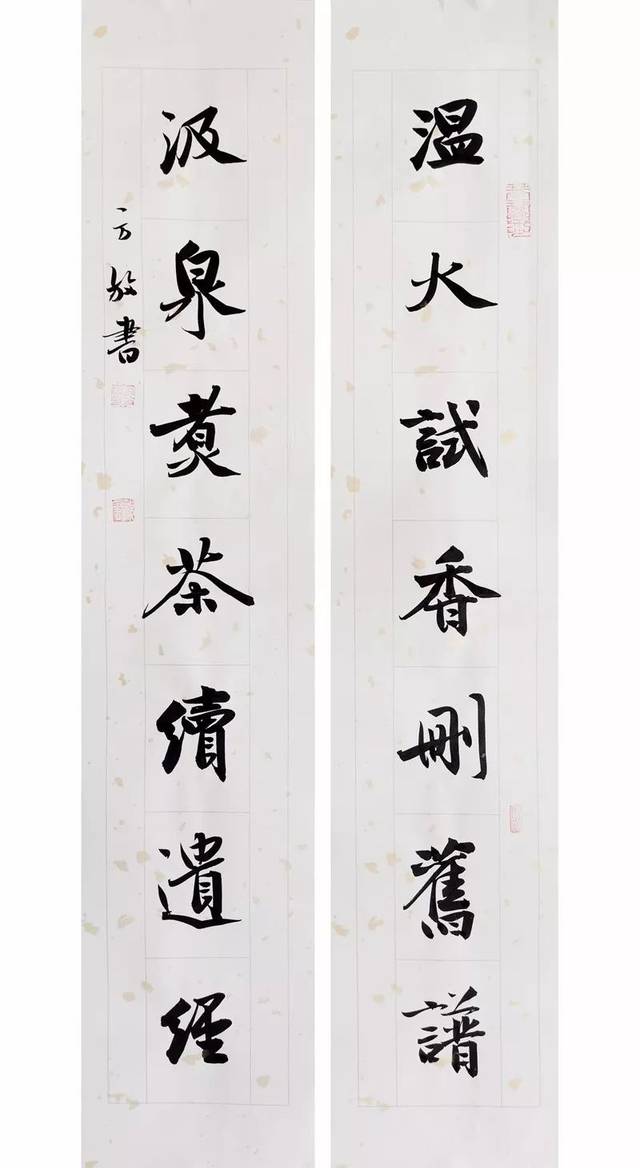 温火試香刪舊譜
汲泉煑茶續遺經
方放書